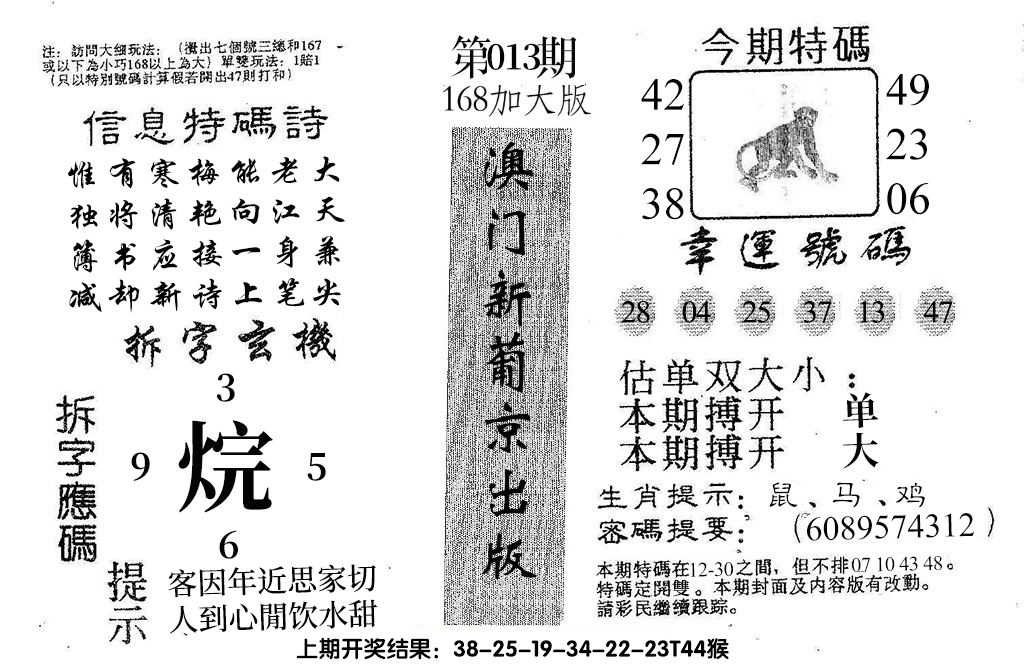 注：訪問大细玩法：（攪出七個號三總和167
或以下為小巧168以上為大）單雙玩法：1賠1
（只以特別號碼計算假若開出47則打和）
信息特碼詩
惟有寒梅能老大
独将清艳向江天
簿书应接一身兼
减却新诗上笔尖
拆字玄機
3
9 烷 5
6
拆字應碼
提示
客因年近思家切
人到心閒饮水甜
第013期
168加大版
澳门新葡京出版
今期特碼
42 49
27 23
38 06
幸運號碼
28 04 25 37 13 47
估单双大小：
本期搏开 单
本期搏开 大
生肖提示：鼠、马、鸡
密碼提要：（6089574312）
本期特碼在12-30之間，但不排07 10 43 48。
特碼定開雙。本期封面及内容版有改動。
請彩民繼續跟踪。
上期开奖结果：38-25-19-34-22-23T44猴